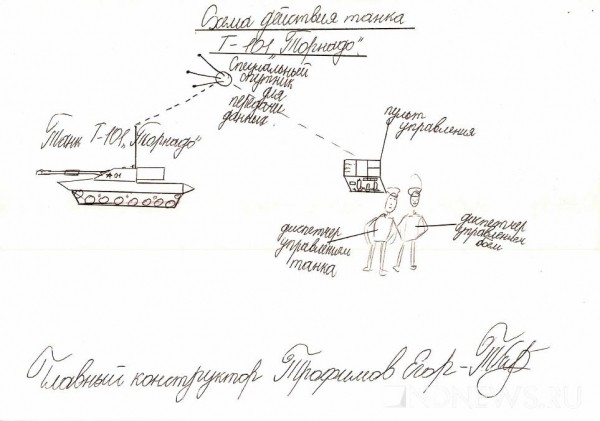 Схема действия танка
Т-101 „Торнадо".
Специальный
спутник
для
передачи
данных.
пульт
управления
Танк Т-101 „Торнадо"
01
диспетчер
управлением
танка
диспетчер
управления
боем
Главный конструктор Трофимов Егор-
NDNEWS.RU